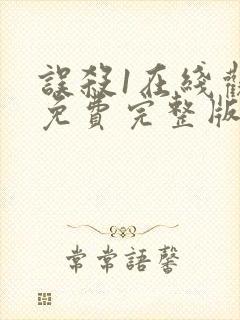 誤殺1在綫觀
免費完整版
常常語馨